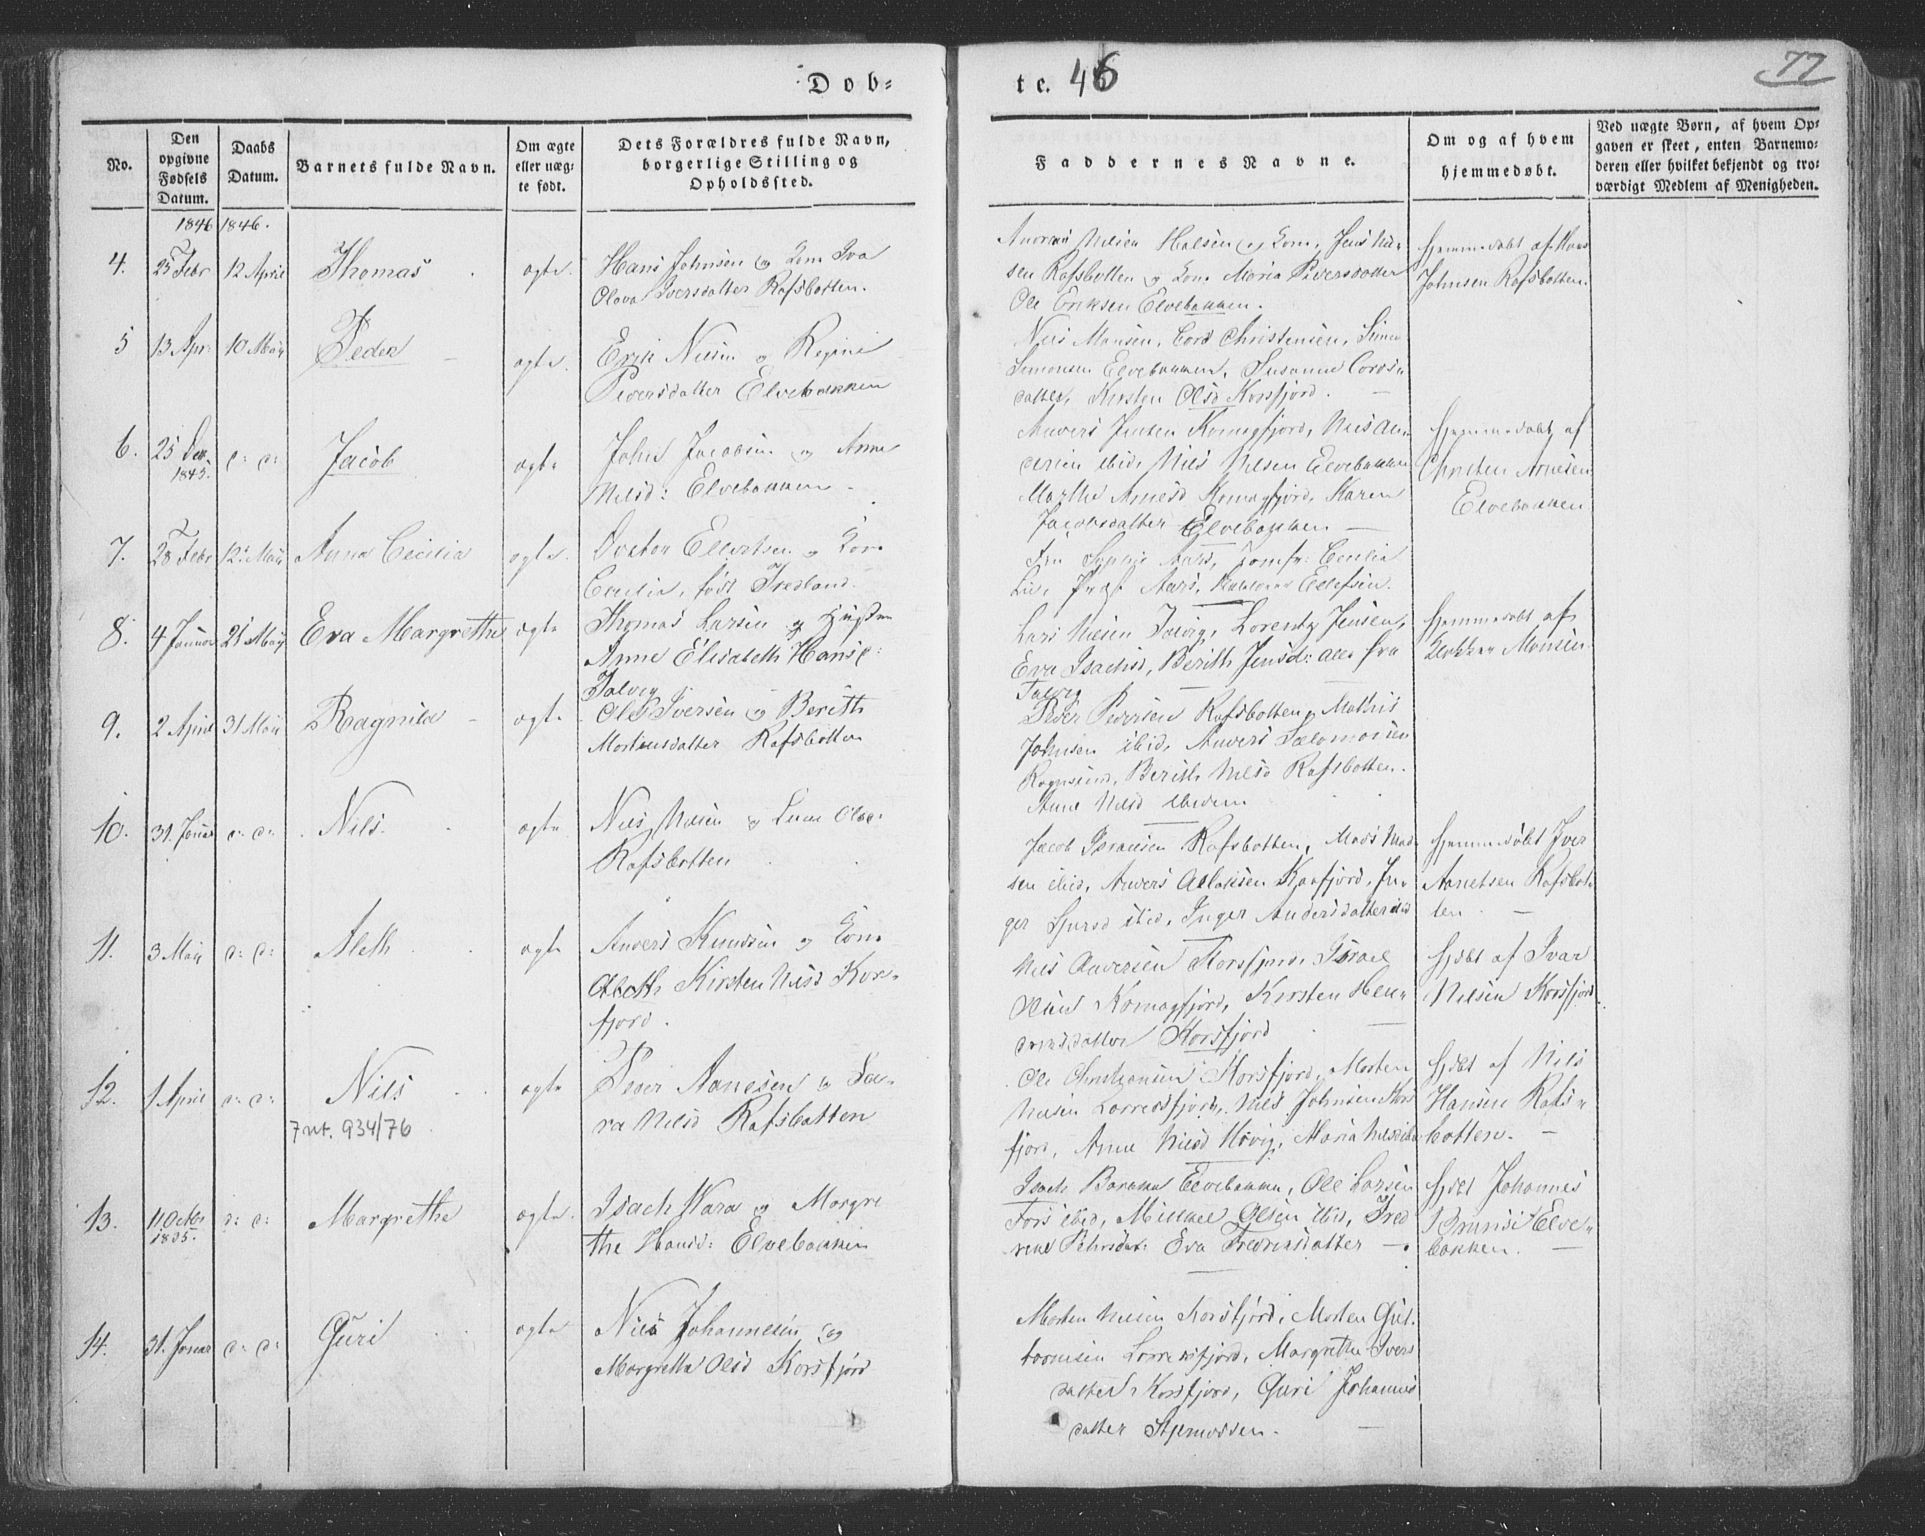 Dob=
te. 46
77
No.
Den opgivne Fødsels Datum.
Daabs Datum.
Barnets fulde Navn.
Om ægte eller uæg- te født.
Dets Forældres fulde Navn, borgerlige Stilling og Opholdssted.
Faddernes Navne.
Om og af hvem hjemmedøbt.
Ved uægte Børn, af hvem Op-
gaven er skeet, enten Barnemo-
deren eller hvilket bekjendt og tro-
værdigt Medlem af Menigheden.
1846 1846.
4. 25 Febr 12 April Thomas ægte.
Hans Johnsen og Kone Eva
Olava Iversdatter Rafsbotten.
Nielsen Kone, Jens
sen Rafsbotten og Kone Maria Pedersdatter
Ole Eriksen Elvebakken.
Hjemmedøbt af Hans
Johnsen Rafsbotten
5 13 Apr: 10 May Peder ægte.
Erik Nielsen og Regine
Pedersdatter Elvebakken
Niels Monsen, Cord Christensen, Simon
Simonsen Elvebakken, Susanne Cords-
datter, Kirsten Olsd Korsfjord.
6. 25 Dec 1845. d: d: Jacob ægte
John Jacobsen og Anne
Nilsd: Elvebakken
Anders Jensen Komagfjord, Niels An-
dersen ibid, Nils Nilsen Elvebakken
Marthe Arnesd Komagfjord, Karen
Jacobsdatter Elvebakken
Hjemmedøbt af
Christen Arnesen
Elvebakken
7. 28 Febr 12 May Anna Cecilia ægte.
Doctor Ellertsen og Kone
Cecilia, født Fredland.
Fru Sophie Aars, Jomfr: Cecilia
Aars, Ellefsen.
8. 4 Januar 21 May Eva Margrethe ægte
Thomas Larsen og Hustru
Anne Elisabeth Hansd:
Talvig
Lars Nielsen Talvig, Lorentz Jensen,
Eva Isachsd, Berith Jensd: alle fra
Talvig
Hjemmedøbt af
Klokker Monsen
9. 2 April 31 May Ragnild ægte
Ole Iversen og Berith
Mortensdatter Rafsbotten
Peder Pedersen Rafsbotten, Mathis
Johnsen ibid, Anders Salomonsen
Berith Nilsd Rafsbotten.
Anne Nilsd ibidem
10. 31. Januar d: d: Nils. ægte
Niels Nielsen og Olsd:
Rafsbotten
Jacob Rafsbotten, Mads Mad-
sen ibid, Anders Aslaksen Kaafjord, In-
ger ibid, Inger Andersdatter ibid
Hjemmedøbt Iver
Arnetsen Rafsbot-
ten.
11. 3 May d: d: Aleth ægte
Anders Knudsen og Kone
Aleth Kirsten Nilsd Kors-
fjord.
Nils Andersen Korsfjord, Israel
Komagfjord, Kirsten Hen-
driksdatter Korsfjord
Hjdbt af Ivar
Nilsen Korsfjord
12. 1 April d: d: Nils ægte
7nt. 934/76
Peder Aanesen og Sa-
ra Nilsd Rafsbotten
Ole Christiansen Korsfjord, Morten
Nielsen Nils Johnsen Kors
fjord, Anne Nilsd Maria
Hjdbt af Nils
Hansen Rafs-
botten.
13. 11 Octbr 1835. d: d: Margrethe ægte.
Isach Wara og Margre
the Hansd: Elvebakken
Isach Elvebakken, Ole Larsen
Fors ibid, Mikkel Olsen ibid, Fred
rike Eva Fredriksdatter
Hjdbt Johannes
Elve-
bakken.
14. 31. Januar d: d: Guri ægte
Nils Johannesen og
Margretha Olsd Korsfjord
Morten Nielsen Korsfjord, Morten Gut-
tormsen Margrethe Ivers
datter Korsfjord, Guri Johannes
datter